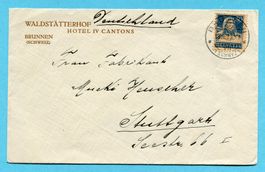 Deutschland
WALDSTÄTTERHOF
HOTEL IV CANTONS
BRUNNEN
(SCHWEIZ)
HELVETIA
Frau Fabrikant
Heuscher
Stuttgart
Seestr 66 I